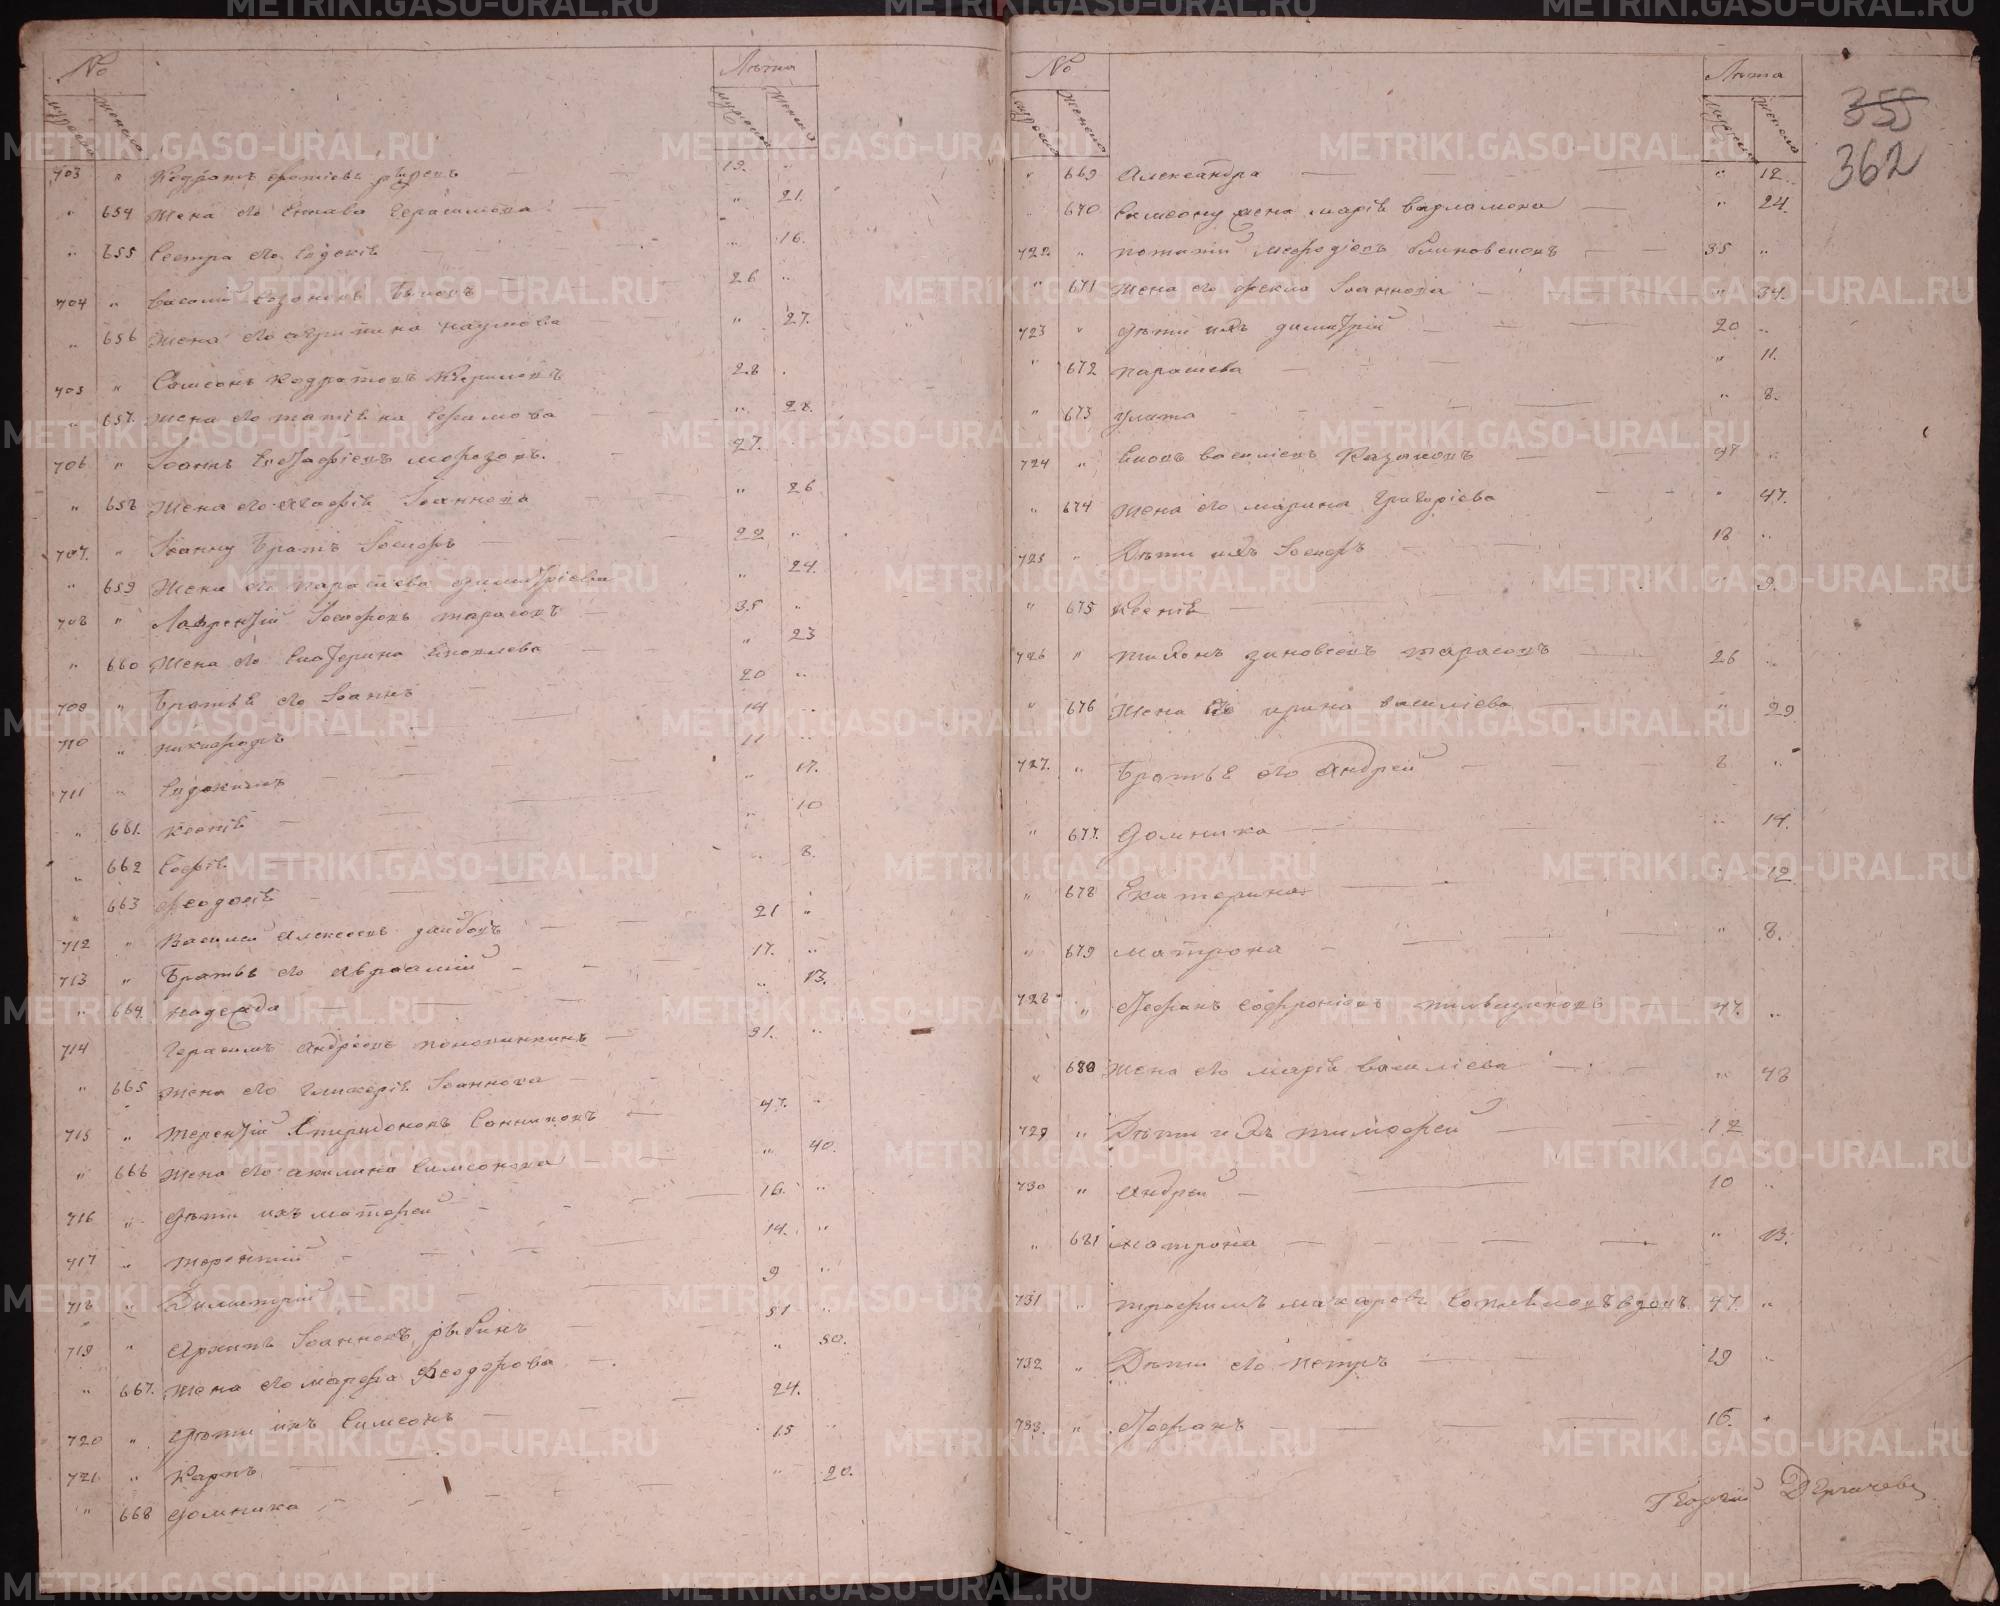 № Лѣта
мужеска женска мужеска женска
703 " Кодратъ Фотіевъ 19. "
" 654 Жена его Герасимова " 21.
" 655 Сестра его Евдокія " 16.
704 " Василій Быковъ 26 "
" 656 Жена его Агрипина Наумова " 27.
705 " Самсонъ Кодратовъ 28 "
" 657. Жена его Татіяна Ефимова " 28.
706 " Іоаннъ Евстафіевъ Морозовъ. 27. "
" 658 Жена его Агафія Іоаннова " 26
707. " Іоанну братъ Іосифъ 22 "
" 659 Жена его Парасцева Димитріева " 24.
708 " Лаврентій Іосифовъ Тарасовъ 35 "
" 660 Жена его Екатерина Яковлева " 23
709 " Братья его Іоаннъ 20 "
710 " Никифоръ 14 "
711 " Евдокимъ 11 "
" 661. Ксенія " 17.
" 662 Софія " 10
" 663 Феодосія " 8.
712 " Василій Алексеевъ 21 "
713 " Братья его Авраамій 17. "
" 664 Надежда " 13.
714 Герасимъ Андреевъ 31. "
" 665 Жена его Гликерія Іоаннова
715 " Терентій Спиридоновъ Санниковъ 47. "
" 666 Жена его Акилина Симеонова " 40.
716 " Дѣти ихъ Матфей 16. "
717 " Терентій 14. "
718 " Димитрій 9 "
719 " Архипъ Іоанновъ Рябинъ 51 "
" 667. Жена его Марфа Феодорова " 50.
720 " Дѣти ихъ Симеонъ 24.
721 " Карпъ 15 "
" 668 Домника " 20.
№ Лѣта
мужеска женска мужеска женска
355
362
" 669 Александра " 12
670 Симеону жена Марія Варламова " 24.
722. " Потапій Мефодіевъ 35 "
" 671 Жена его Фекла Іоаннова " 34.
723 " Дѣти ихъ Димитрій 20 "
" 672 Парасцева " 11.
" 673 Улита " 8.
724 " Василіевъ Казаковъ 47 "
" 674 Жена его Марина Григоріева " 47.
725 " Дѣти ихъ Іосифъ 18 "
" 675 Ксенія " 9.
726 " Тихонъ Зиновеевъ Тарасовъ 26 "
" 676 Жена его Ирина Василіева " 29
727. " Братья его Андрей 8 "
" 677. Домника " 14.
" 678 Екатерина " 12
" 679 Матрона " 8.
728 " Стефанъ Софроніевъ 47. "
" 680 Жена его Марія Василіева " 48
729 " Дѣти ихъ Тимофей 12
730 " Андрей 10 "
" 681 Матрона " 13.
731 " Трофимъ Макаровъ вдовъ 47. "
732 " Дѣти его Петръ 19 "
733. " Стефанъ 16. "
Георгій